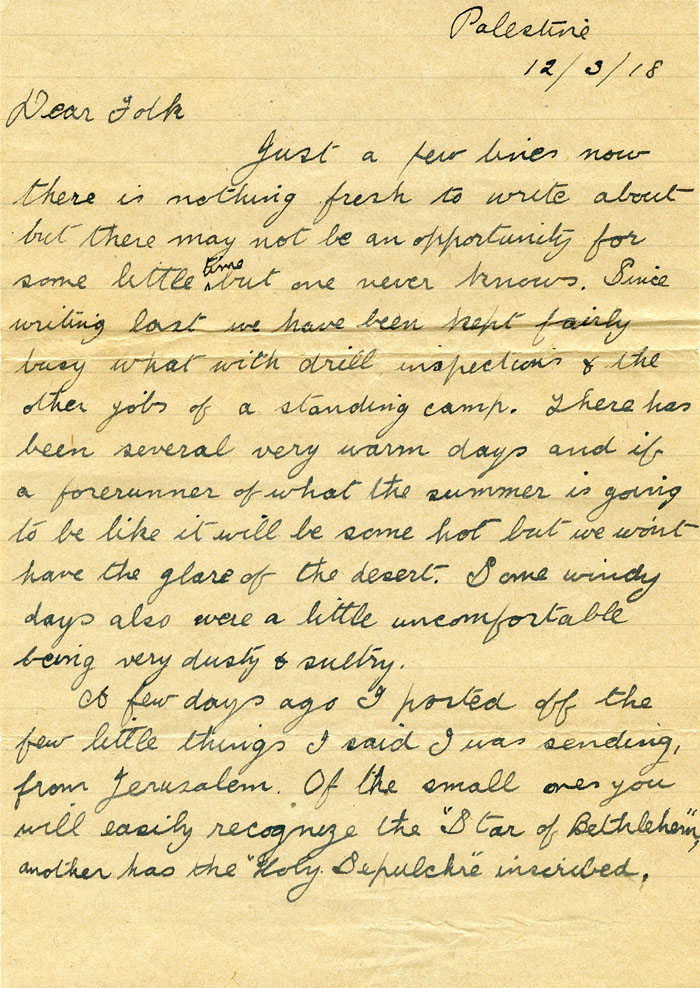 Palestine
12/3/18
Dear Folk
Just a few lines now
there is nothing fresh to write about
but there may not be an opportunity for
some little time but one never knows. Since
writing last we have been kept fairly
busy what with drill inspections & the
other jobs of a standing camp. There has
been several very warm days and if
a forerunner of what the summer is going
to be like it will be some hot but we won't
have the glare of the desert. Some windy
days also were a little uncomfortable
being very dusty & sultry.
A few days ago I posted off the
few little things I said I was sending,
from Jerusalem. Of the small ones you
will easily recognize the "Star of Bethlehem",
another has the "Holy Sepulchre" inscribed,